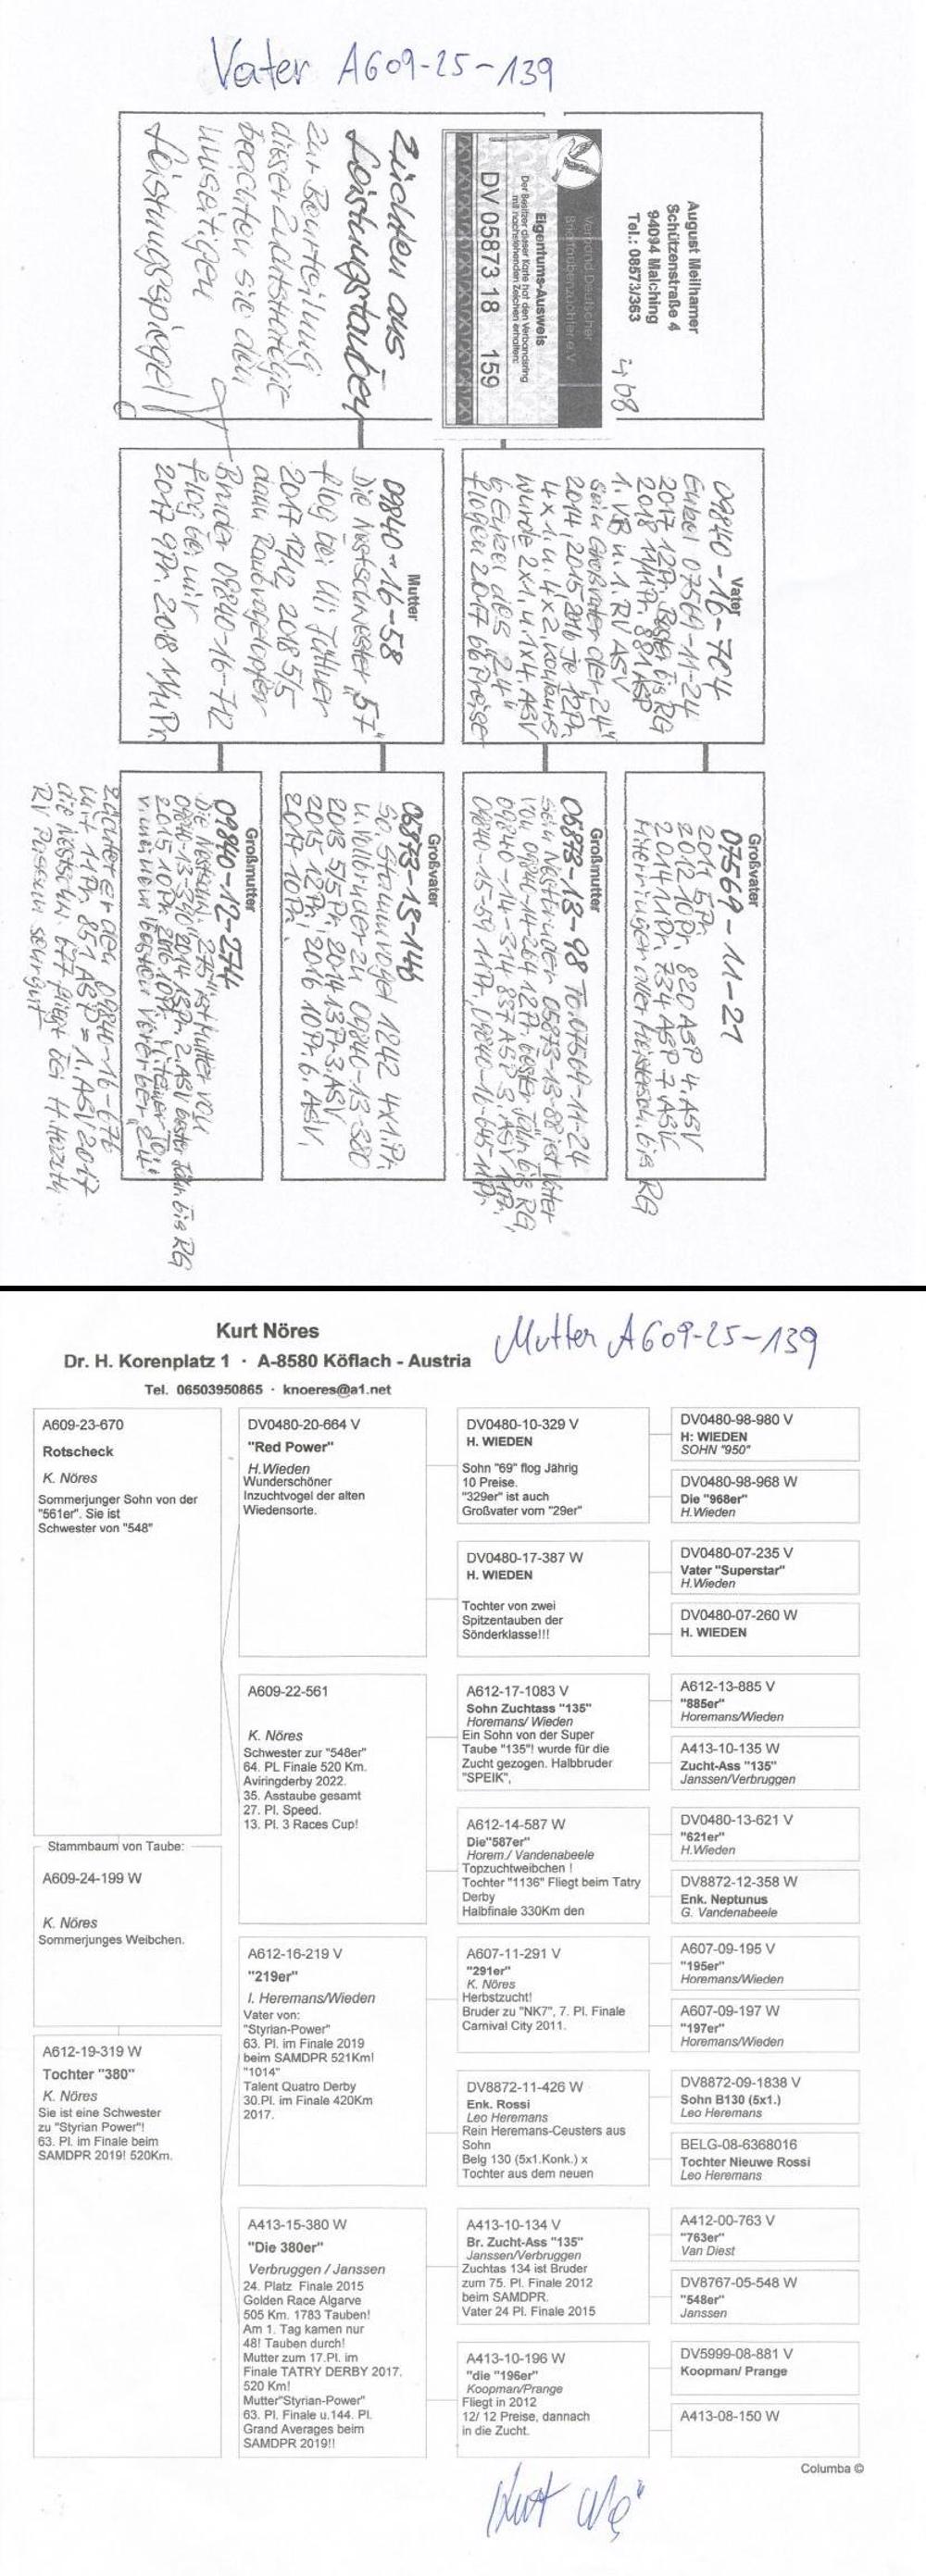 Vater A609-25-139
August Meilhamer
Schützenstraße 4
94094 Malching
Tel.: 08573/363
Verband Deutscher
Brieftaubenzüchter e.V.
Eigentums-Ausweis
Der Besitzer dieser Karte hat den Verbandsring
mit nachstehenden Zeichen erhalten:
DV 05873 18 159
Züchten aus
Leistungstauben
Zur Beurteilung
dieser Zuchtstrategie
beachten sie den
umseitigen
Leistungsspiegel
Vater
09840-16-704
Enkel 07569-11-24
2017 12Pr. Bester bis RG
2018 11Pr. 881 ASP
1. VB u. 1. RV ASV
sein Großvater der "24"
2014, 2015, 2016 je 12Pr.
4x1. u. 4x2. Konkurs
wurde 2x1. u. 1x4. ASV
6 Enkel des "24"
flogen 2017 66 Preise
Mutter
09840-16-58
Die Nestschwester "57"
flog bei
2017 14/12, 2018 5/5
dann Raubvogelopfer
Bruder 09840-16-742
flog bei mir
2017 9Pr. 2018 11Pr.
Großvater
07569-11-21
2011 5Pr.
2012 10Pr. 820 ASP 4. ASV
2014 11Pr. 734 ASP 7. ASV
bis RG
Großmutter
05873-13-98 To. 07569-11-24
sein Nestbruder 05873-13-88 ist Vater
von 09840-14-264 12Pr. bester Jähr. bis RG
09840-14-314 837 ASP 3. ASV 11Pr.
09840-15-59 11Pr., 09840-16-645 11Pr.
Großvater
05873-13-146
So. Stammvogel 1242 4x1.Pr.
u. Vollbruder zu 09840-13-380
2013 5/5Pr. 2014 13Pr. 3. ASV
2015 12Pr., 2016 10Pr. 6. ASV,
2017 10Pr.
Großmutter
09840-12-274
Die Nestschw. "275" ist Mutter von
09840-13-340 2014 13Pr. 2. ASV bester Jähr. bis RG
2015 10Pr. 2016 10Pr.
v. meinem besten Vererber "24"
09840-16-676
mit 11Pr. 851 ASP = 1. ASV 2017
die Nestschw. 677 fliegt bei H.
RV Passau sehr gut
Mutter A609-25-139
Kurt Nöres
Dr. H. Korenplatz 1 · A-8580 Köflach - Austria
Tel. 06503950865 · knoeres@a1.net
A609-23-670
Rotscheck
K. Nöres
Sommerjunger Sohn von der
"561er". Sie ist
Schwester von "548"
Stammbaum von Taube:
A609-24-199 W
K. Nöres
Sommerjunges Weibchen.
A612-19-319 W
Tochter "380"
K. Nöres
Sie ist eine Schwester
zu "Styrian Power"!
63. Pl. im Finale beim
SAMDPR 2019! 520Km.
DV0480-20-664 V
"Red Power"
H.Wieden
Wunderschöner
Inzuchtvogel der alten
Wiedensorte.
A609-22-561
K. Nöres
Schwester zur "548er"
64. PL Finale 520 Km.
Aviringderby 2022.
35. Asstaube gesamt
27. Pl. Speed.
13. Pl. 3 Races Cup!
A612-16-219 V
"219er"
I. Heremans/Wieden
Vater von:
"Styrian-Power"
63. Pl. im Finale 2019
beim SAMDPR 521Km!
"1014"
Talent Quatro Derby
30.Pl. im Finale 420Km
2017.
A413-15-380 W
"Die 380er"
Verbruggen / Janssen
24. Platz Finale 2015
Golden Race Algarve
505 Km. 1783 Tauben!
Am 1. Tag kamen nur
48! Tauben durch!
Mutter zum 17.Pl. im
Finale TATRY DERBY 2017.
520 Km!
Mutter"Styrian-Power"
63. Pl. Finale u.144. Pl.
Grand Averages beim
SAMDPR 2019!!
DV0480-10-329 V
H. WIEDEN
Sohn "69" flog Jährig
10 Preise.
"329er" ist auch
Großvater vom "29er"
DV0480-17-387 W
H. WIEDEN
Tochter von zwei
Spitzentauben der
Sönderklasse!!!
A612-17-1083 V
Sohn Zuchtass "135"
Horemans/ Wieden
Ein Sohn von der Super
Taube "135"! wurde für die
Zucht gezogen. Halbbruder
"SPEIK",
A612-14-587 W
Die"587er"
Horem./ Vandenabeele
Topzuchtweibchen !
Tochter "1136" Fliegt beim Tatry
Derby
Halbfinale 330Km den
A607-11-291 V
"291er"
K. Nöres
Herbstzucht!
Bruder zu "NK7", 7. Pl. Finale
Carnival City 2011.
DV8872-11-426 W
Enk. Rossi
Leo Heremans
Rein Heremans-Ceusters aus
Sohn
Belg 130 (5x1.Konk.) x
Tochter aus dem neuen
A413-10-134 V
Br. Zucht-Ass "135"
Janssen/Verbruggen
Zuchtas 134 ist Bruder
zum 75. Pl. Finale 2012
beim SAMDPR.
Vater 24 Pl. Finale 2015
A413-10-196 W
"die "196er"
Koopman/Prange
Fliegt in 2012
12/ 12 Preise, dannach
in die Zucht.
DV0480-98-980 V
H: WIEDEN
SOHN "950"
DV0480-98-968 W
Die "968er"
H.Wieden
DV0480-07-235 V
Vater "Superstar"
H.Wieden
DV0480-07-260 W
H. WIEDEN
A612-13-885 V
"885er"
Horemans/Wieden
A413-10-135 W
Zucht-Ass "135"
Janssen/Verbruggen
DV0480-13-621 V
"621er"
H.Wieden
DV8872-12-358 W
Enk. Neptunus
G. Vandenabeele
A607-09-195 V
"195er"
Horemans/Wieden
A607-09-197 W
"197er"
Horemans/Wieden
DV8872-09-1838 V
Sohn B130 (5x1.)
Leo Heremans
BELG-08-6368016
Tochter Nieuwe Rossi
Leo Heremans
A412-00-763 V
"763er"
Van Diest
DV8767-05-548 W
"548er"
Janssen
DV5999-08-881 V
Koopman/ Prange
A413-08-150 W
Columba ©